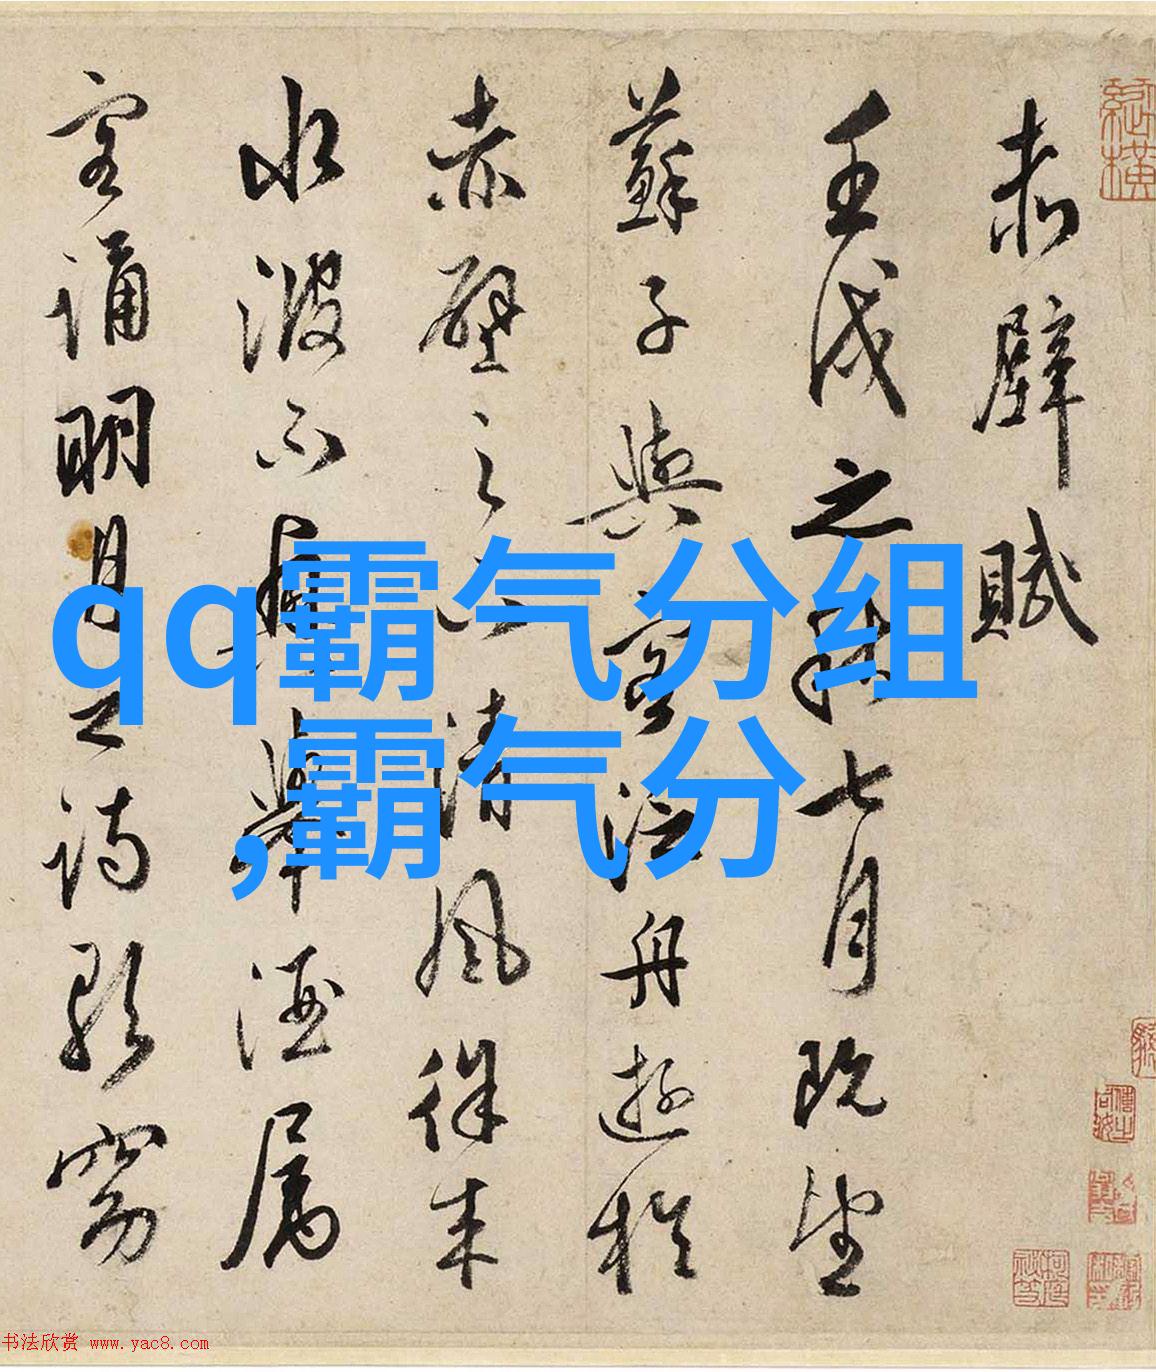 赤壁賦
壬戌之秋七月既望
蘇子與客泛舟遊於
赤壁之下清風徐来
水波不興舉酒屬
客誦明月之詩歌窈
qq霸气分组
,霸气分
书法欣赏 www.yac8.com